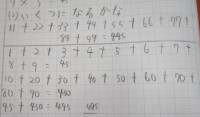 (2)いくつになるかな
11+22+33+44+55+66+77+
88+99=495
1+2+3+4+5+6+7+
8+9=45
10+20+30+40+50+60+70+
80+90=450
45+450=495 495